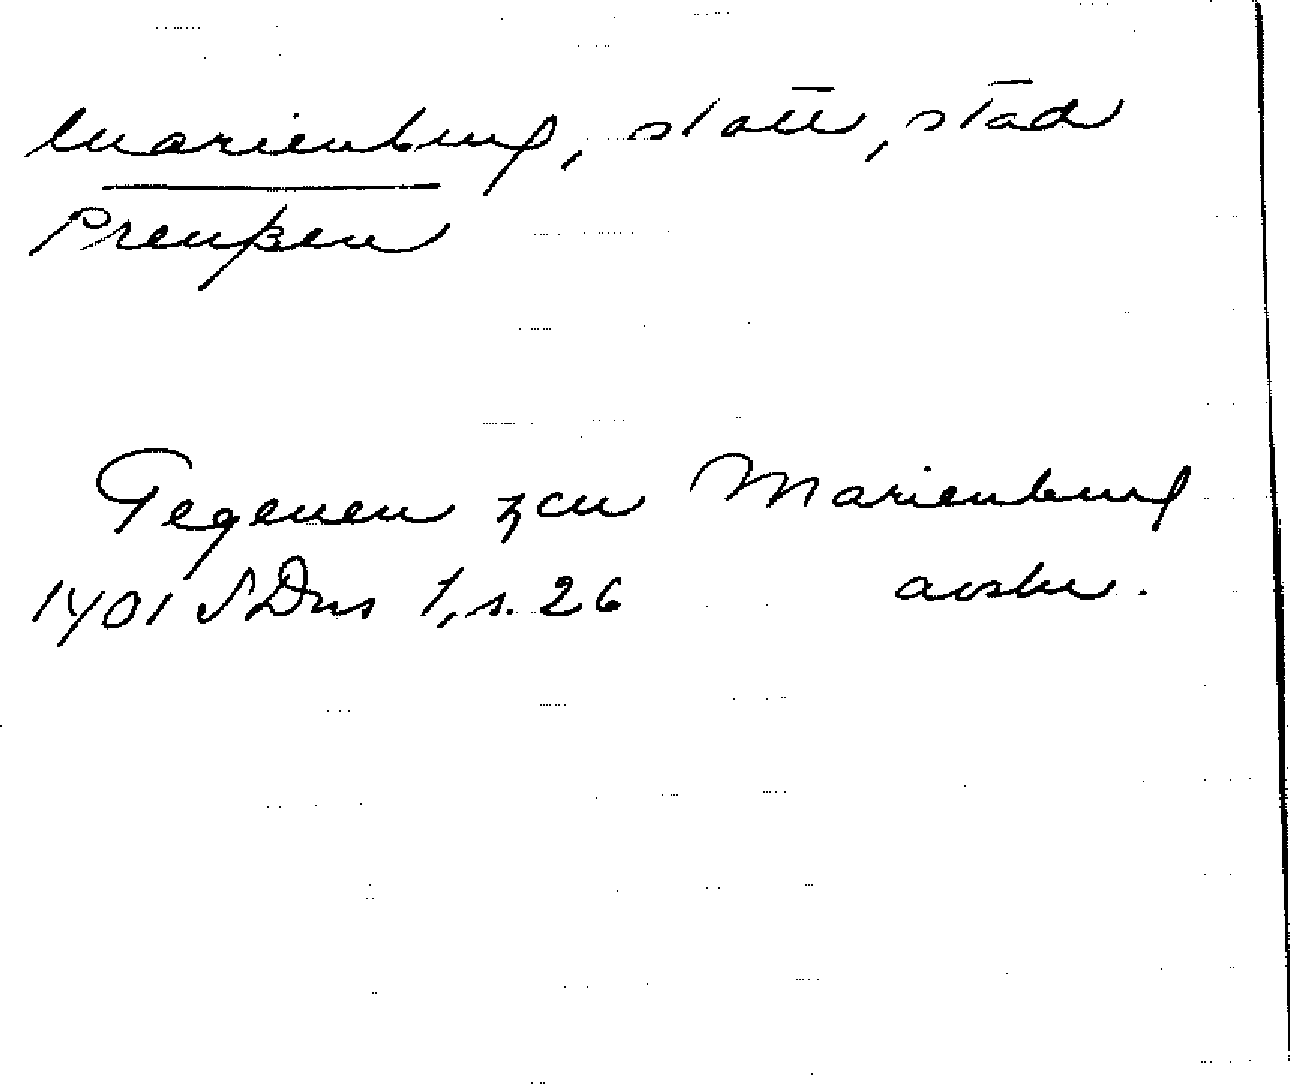 Marienburg, slott, stad
Preußen
Gegeuen zcu Marienburg
1401 SDns 1, s. 26 avskr.